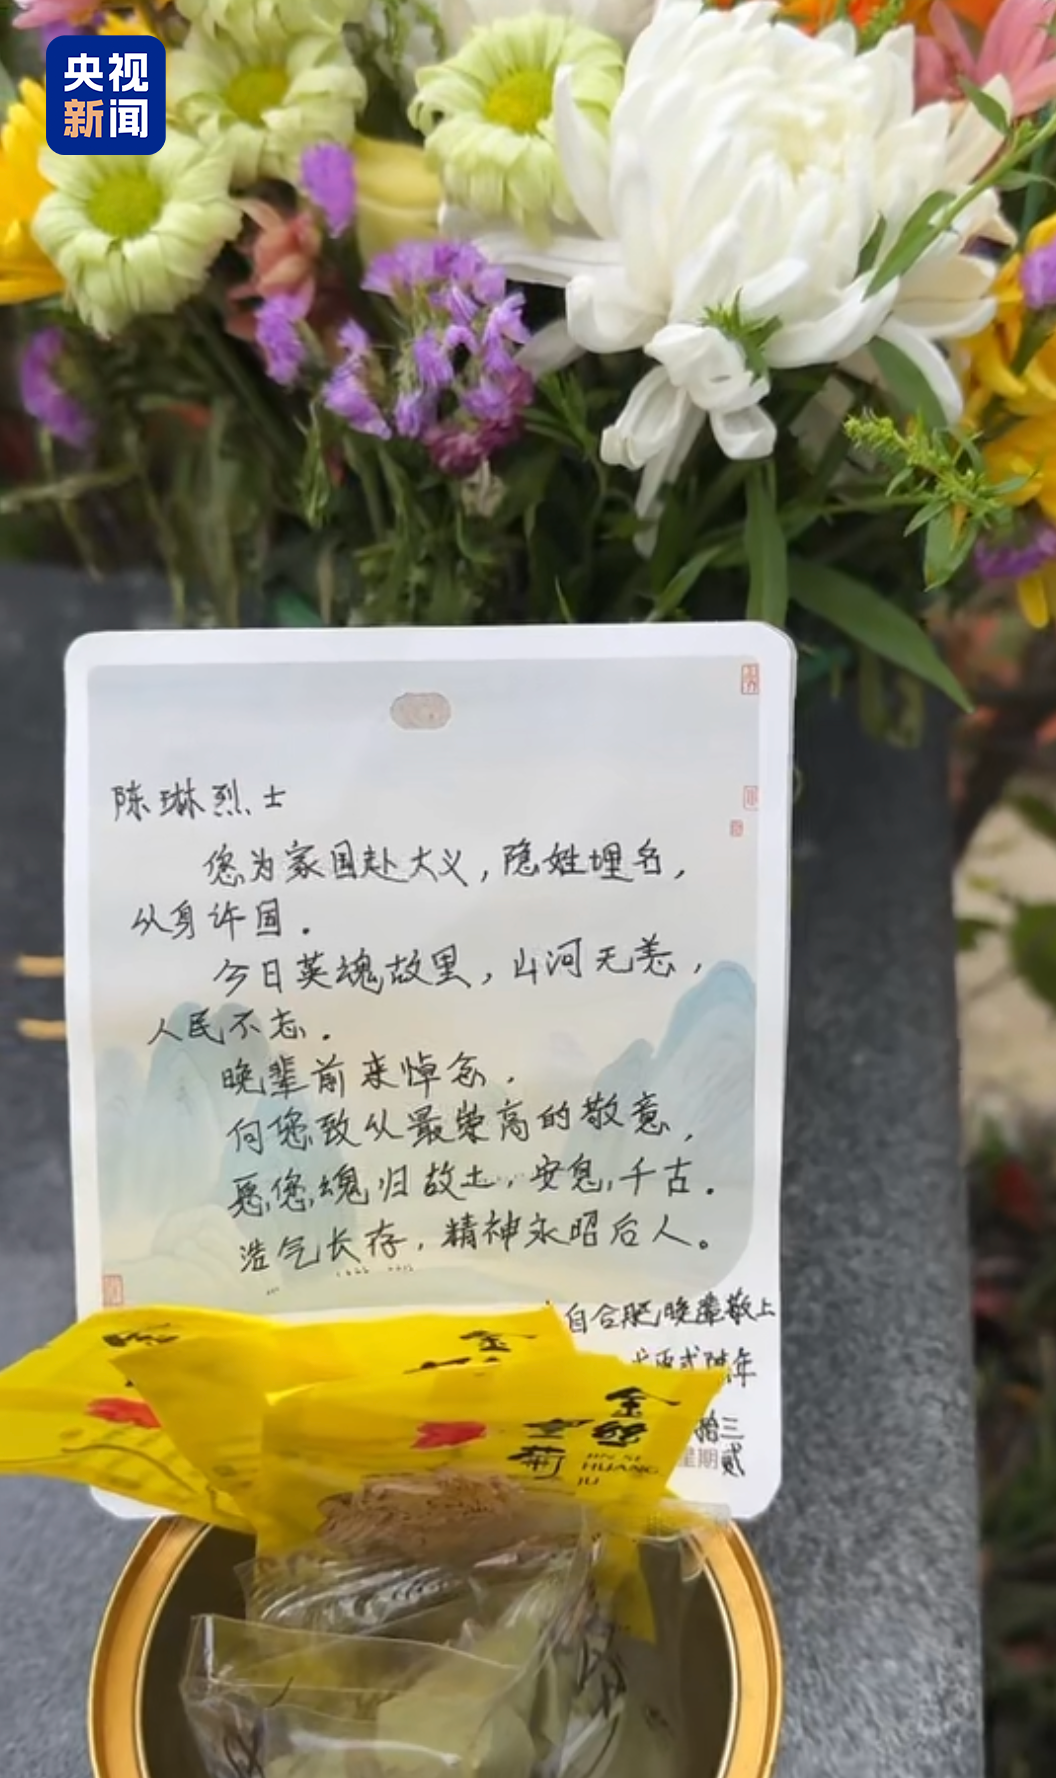 央视
新闻
陈琳烈士
您为家国赴大义，隐姓埋名，
以身许国．
今日英魂故里，山河无恙，
人民不忘．
晚辈前来悼念．
向您致以最崇高的敬意，
愿您魂归故土，安息，千古．
浩气长存，精神永昭后人。
自合肥晚辈敬上
年
拾三
星期贰
金丝
皇菊
JIN SI
HUANG
JU